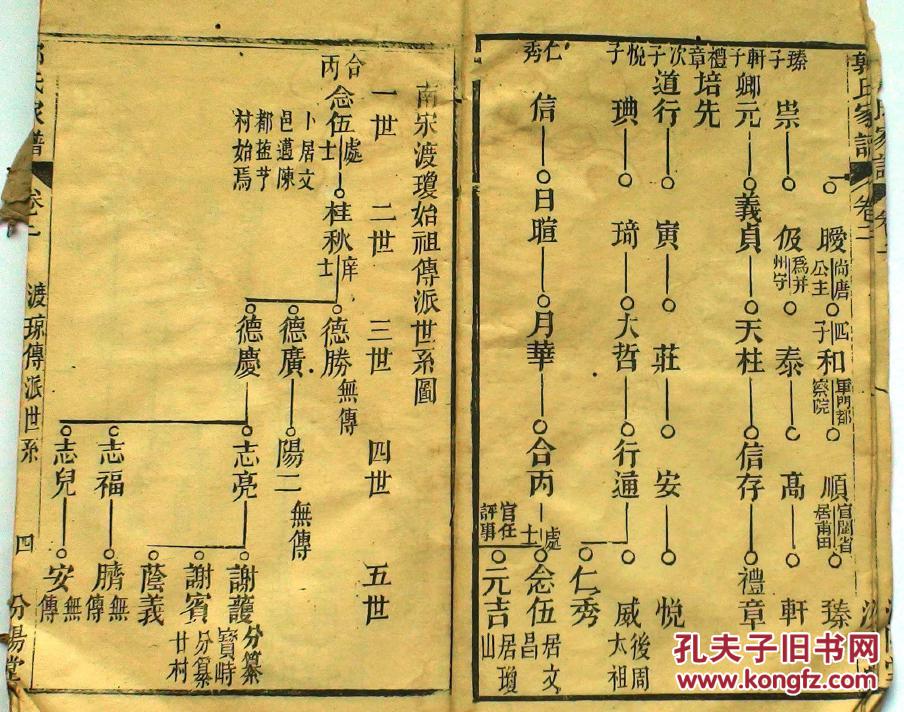 郭氏家譜 卷二
一曖 尚唐公主 四子 和 軍門都察院 順 官閩省居莆田 臻
臻子 祟 伋 為并州守 泰 高 軒
軒子 卿元 義貞 天柱 信存 禮章
禮章次子 培先
道行 寅 莊 安 悅
悅子 琠 琦 大哲 行通 威 後周太祖
仁秀
仁秀 信 日暄 月華 合丙 處士 念伍 居文昌
官任評事 元吉 居瓊山
南宋渡瓊始祖傳派世系圖
一世 二世 三世 四世 五世
合丙 念伍 處士 桂秋 庠士 德勝 無傳
卜居文邑邁陳都 村始焉
德廣 陽二 無傳
德慶 志亮 謝護 分纂寶峙
謝賓 分纂廿村
蔭義
志福 臍 無傳
志兒 安 無傳
氏家譜 卷二 渡琼傳派世系 四 汾陽堂
孔夫子旧书网
www.kongfz.com